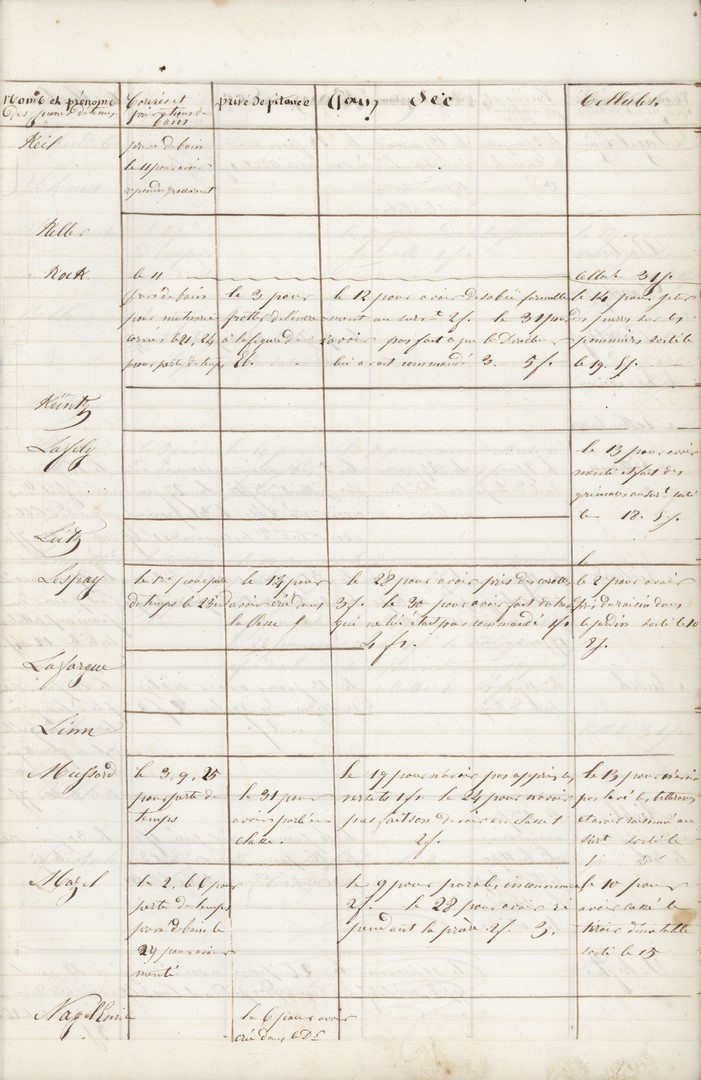 Noms et prénoms
des jeunes détenus
Corvées et
privations de
bain
privé de pitance
Pain Sec
Cellules.
Keil
privé de bain
le 11 pour avoir
répondu grossièrement
Keller
Kock
le 11
Cellule 31 f.
privé de bain
pour
corvée le 21, 24
pour perte de temps
le 3 pour
à la figure de
le 12 pour avoir désobéi formelle
ment au surv.t 2 f. le 31 pour
n'avoir pas fait ce que le Directeur
lui avait commandé 3. 5 f.
le 14 pour jeter
des pierres sur les
pommiers sorti le
le 19. 5 f.
Küntz
Lafily
le 13 pour avoir
menti et fait des
grimaces au sur.t sorti
le 18. 5 f.
Lütz
Lespay
le 1er pour perte
de temps le 23
le 14 pour
avoir crié dans
la classe
le 28 pour avoir pris des carottes
3 f. le 30 pour avoir fait
qui ne lui était pas commandé 1 f.
4 f.
le 2 pour avoir
pris du raisin dans
le jardin sorti le 10
8 f.
Lafargue
Linn
Mussard
le 3, 9, 25
pour perte de
temps
le 31 pour
avoir parlé en
classe.
le 19 pour n'avoir pas appris les
versets 1 f. le 24 pour n'avoir
pas fait son devoir en classe 1
2 f.
le 13 pour n'avoir
pas lavé les betteraves
et avoir raisonné au
surt sorti le
Mazel
le 2, le 6 pour
perte de temps
privé de bain le
29 pour avoir
menti
le 9 pour paroles inconvenantes
2 f. le 28 pour avoir ri
pendant la prière 2 f. 3.
le 10 pour
avoir cassé le
tiroir d'une table
sorti le 15
Nagel Emile
le 6 pour avoir
crié dans le Dr